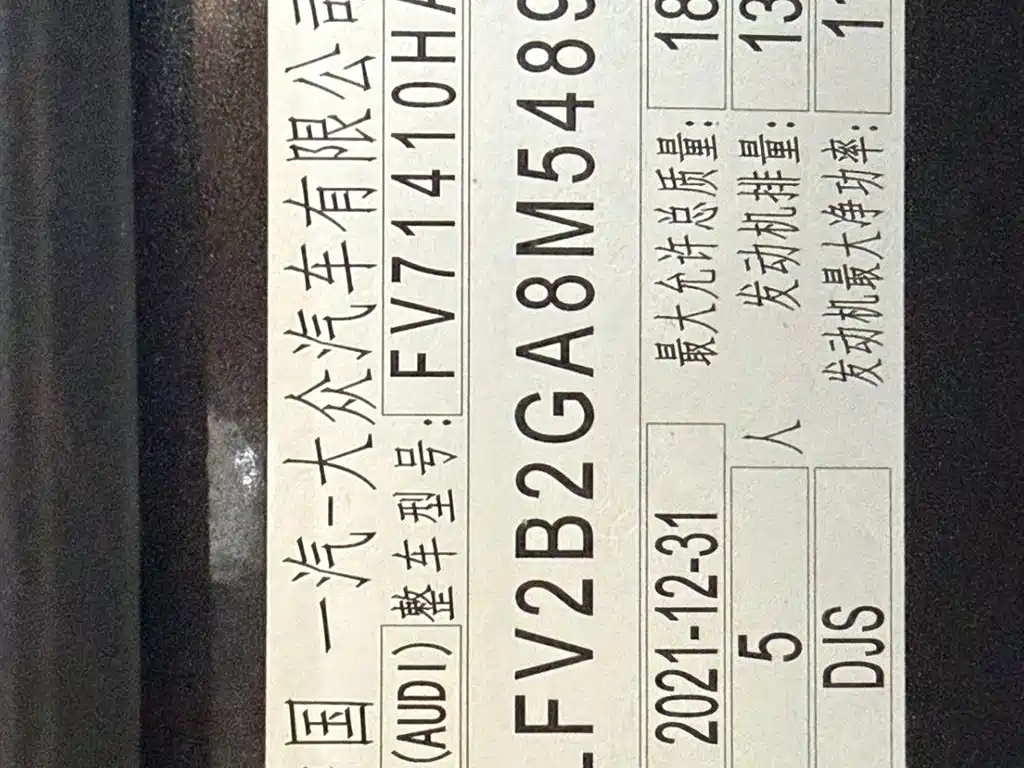 国 一汽-大众汽车有限公司
(AUDI) 整车型号: FV71410HA
LFV2B2GA8M5489
2021-12-31 最大允许总质量: 18
5 人 发动机排量: 13
DJS 发动机最大净功率: 11